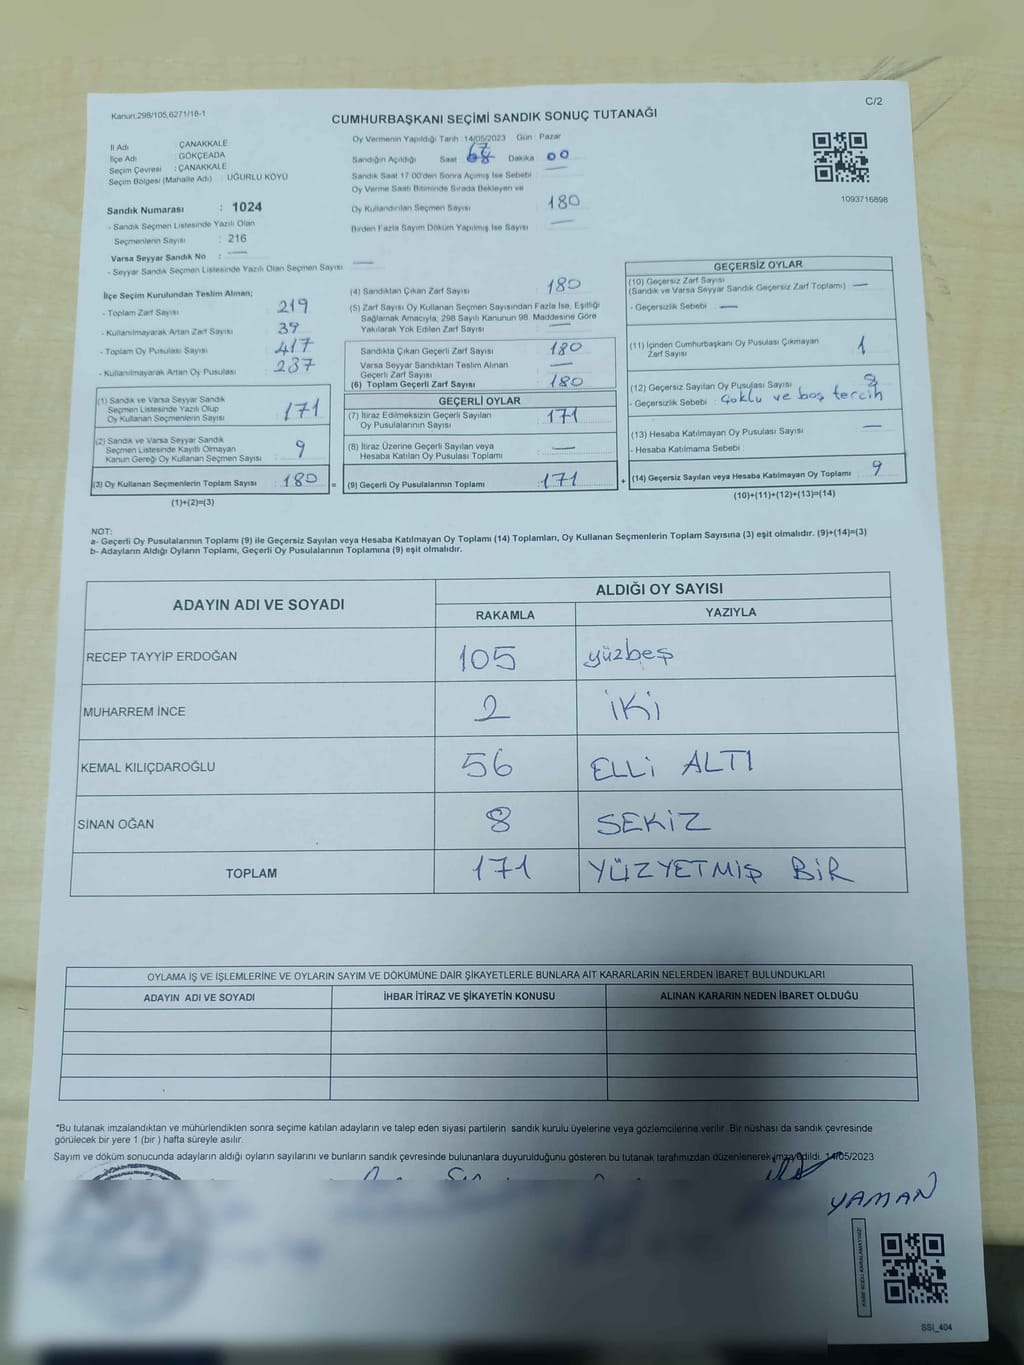 Kanun;298/105,6271/18-1
C/2
CUMHURBAŞKANI SEÇİMİ SANDIK SONUÇ TUTANAĞI
İl Adı : ÇANAKKALE
İlçe Adı : GÖKÇEADA
Seçim Çevresi : ÇANAKKALE
Seçim Bölgesi (Mahalle Adı) : UĞURLU KÖYÜ
Sandık Numarası : 1024
- Sandık Seçmen Listesinde Yazılı Olan
Seçmenlerin Sayısı : 216
Varsa Seyyar Sandık No : —
- Seyyar Sandık Seçmen Listesinde Yazılı Olan Seçmen Sayısı —
Oy Vermenin Yapıldığı Tarih 14/05/2023 Gün Pazar
Sandığın Açıldığı Saat Dakika 00
Sandık Saat 17:00'den Sonra Açılmış İse Sebebi —
Oy Verme Saati Bitiminde Sırada Bekleyen ve
Oy Kullandırılan Seçmen Sayısı 180
Birden Fazla Sayım Döküm Yapılmış İse Sayısı —
1093716898
İlçe Seçim Kurulundan Teslim Alınan;
- Toplam Zarf Sayısı 219
- Kullanılmayarak Artan Zarf Sayısı 39
- Toplam Oy Pusulası Sayısı 417
- Kullanılmayarak Artan Oy Pusulası 237
(1) Sandık ve Varsa Seyyar Sandık
Seçmen Listesinde Yazılı Olup
Oy Kullanan Seçmenlerin Sayısı 171
(2) Sandık ve Varsa Seyyar Sandık
Seçmen Listesinde Kayıtlı Olmayan
Kanun Gereği Oy Kullanan Seçmen Sayısı 9
(3) Oy Kullanan Seçmenlerin Toplam Sayısı 180 =
(1)+(2)=(3)
(4) Sandıktan Çıkan Zarf Sayısı 180
(5) Zarf Sayısı Oy Kullanan Seçmen Sayısından Fazla İse, Eşitliği
Sağlamak Amacıyla, 298 Sayılı Kanunun 98. Maddesine Göre
Yakılarak Yok Edilen Zarf Sayısı —
Sandıkta Çıkan Geçerli Zarf Sayısı 180
Varsa Seyyar Sandıktan Teslim Alınan
Geçerli Zarf Sayısı —
(6) Toplam Geçerli Zarf Sayısı 180
GEÇERLİ OYLAR
(7) İtiraz Edilmeksizin Geçerli Sayılan
Oy Pusulalarının Sayısı 171
(8) İtiraz Üzerine Geçerli Sayılan veya
Hesaba Katılan Oy Pusulası Toplamı —
(9) Geçerli Oy Pusulalarının Toplamı 171 +
GEÇERSİZ OYLAR
(10) Geçersiz Zarf Sayısı
(Sandık ve Varsa Seyyar Sandık Geçersiz Zarf Toplamı) —
- Geçersizlik Sebebi —
(11) İçinden Cumhurbaşkanı Oy Pusulası Çıkmayan
Zarf Sayısı 1
(12) Geçersiz Sayılan Oy Pusulası Sayısı 8
- Geçersizlik Sebebi çoklu ve boş tercih
(13) Hesaba Katılmayan Oy Pusulası Sayısı —
- Hesaba Katılmama Sebebi
(14) Geçersiz Sayılan veya Hesaba Katılmayan Oy Toplamı 9
(10)+(11)+(12)+(13)=(14)
NOT:
a- Geçerli Oy Pusulalarının Toplamı (9) ile Geçersiz Sayılan veya Hesaba Katılmayan Oy Toplamı (14) Toplamları, Oy Kullanan Seçmenlerin Toplam Sayısına (3) eşit olmalıdır. (9)+(14)=(3)
b- Adayların Aldığı Oyların Toplamı, Geçerli Oy Pusulalarının Toplamına (9) eşit olmalıdır.
ADAYIN ADI VE SOYADI
ALDIĞI OY SAYISI
RAKAMLA YAZIYLA
RECEP TAYYİP ERDOĞAN 105 yüzbeş
MUHARREM İNCE 2 İKİ
KEMAL KILIÇDAROĞLU 56 ELLİ ALTI
SİNAN OĞAN 8 SEKİZ
TOPLAM 171 YÜZYETMİŞ BİR
OYLAMA İŞ VE İŞLEMLERİNE VE OYLARIN SAYIM VE DÖKÜMÜNE DAİR ŞİKAYETLERLE BUNLARA AİT KARARLARIN NELERDEN İBARET BULUNDUKLARI
ADAYIN ADI VE SOYADI İHBAR İTİRAZ VE ŞİKAYETİN KONUSU ALINAN KARARIN NEDEN İBARET OLDUĞU
*Bu tutanak imzalandıktan ve mühürlendikten sonra seçime katılan adayların ve talep eden siyasi partilerin sandık kurulu üyelerine veya gözlemcilerine verilir. Bir nüshası da sandık çevresinde
görülecek bir yere 1 (bir) hafta süreyle asılır.
Sayım ve döküm sonucunda adayların aldığı oyların sayılarını ve bunların sandık çevresinde bulunanlara duyurulduğunu gösteren bu tutanak tarafımızdan düzenlenerek imza edildi. 14/05/2023
YAMAN
KARE KODU KARALAMAYINIZ!
SSİ_404